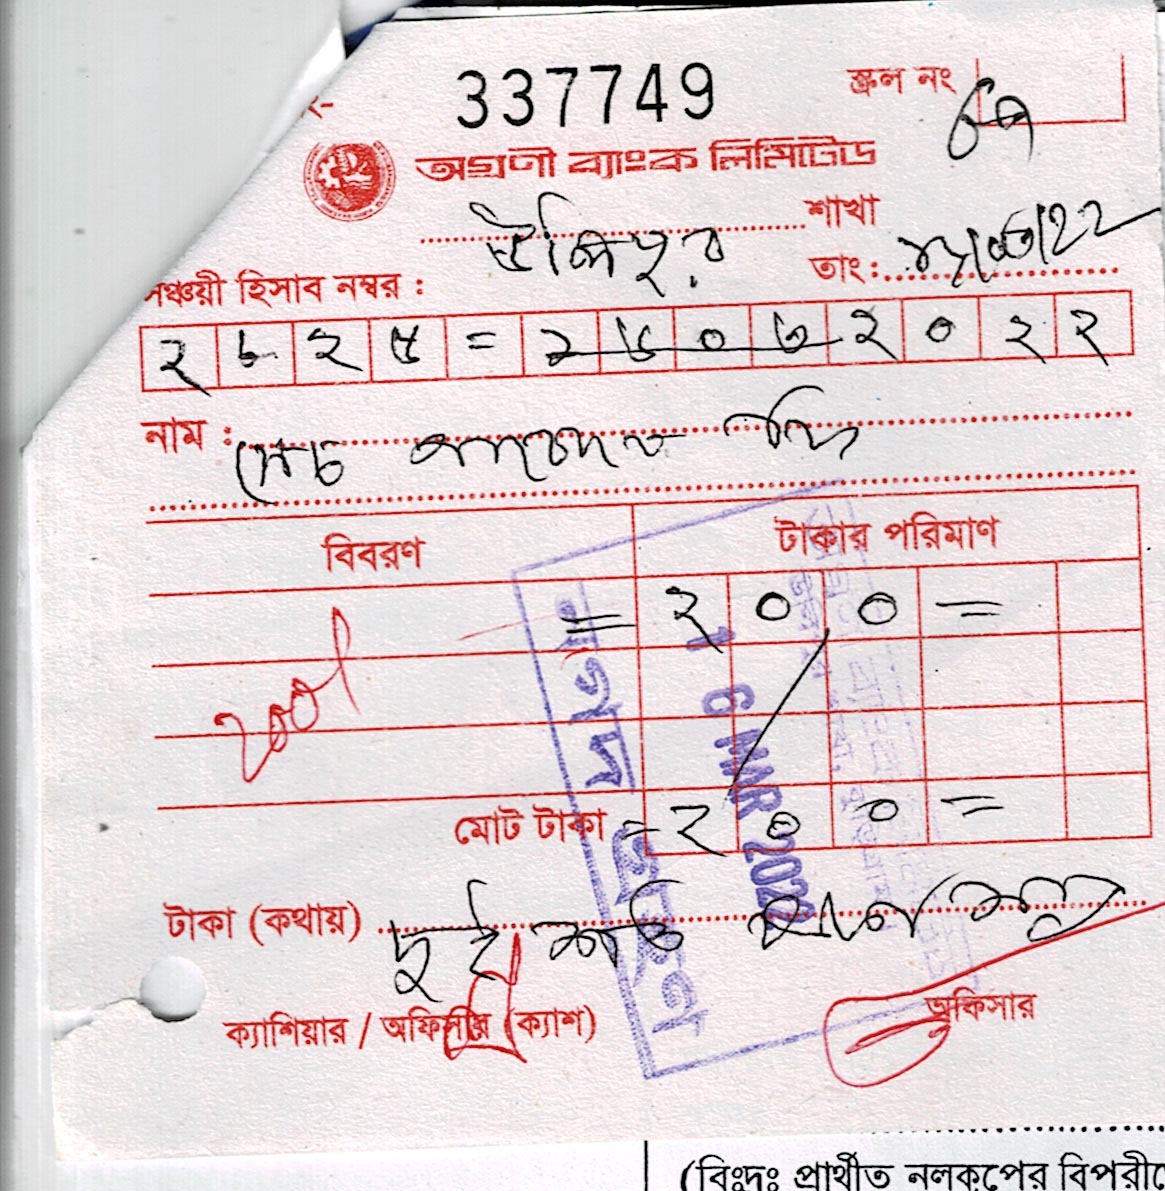 নং- 337749 স্ক্রল নং
অগ্রণী ব্যাংক লিমিটেড
উলিপুর শাখা
সঞ্চয়ী হিসাব নম্বর : তাং:
২ ৮ ২ ৫ = ২ ৬ ০ ৩ ২ ০ ২ ২
নাম :
বিবরণ টাকার পরিমাণ
= ২ ০ ০ =
২০০/
মোট টাকা = ২ ০ ০ =
টাকা (কথায়) দুই শত মাত্র
ক্যাশিয়ার / অফিসার (ক্যাশ) অফিসার
নগদ গ্রহণ
1 6 MAR 2022
(বিঃদ্রঃ প্রার্থীত নলকূপের বিপরীতে